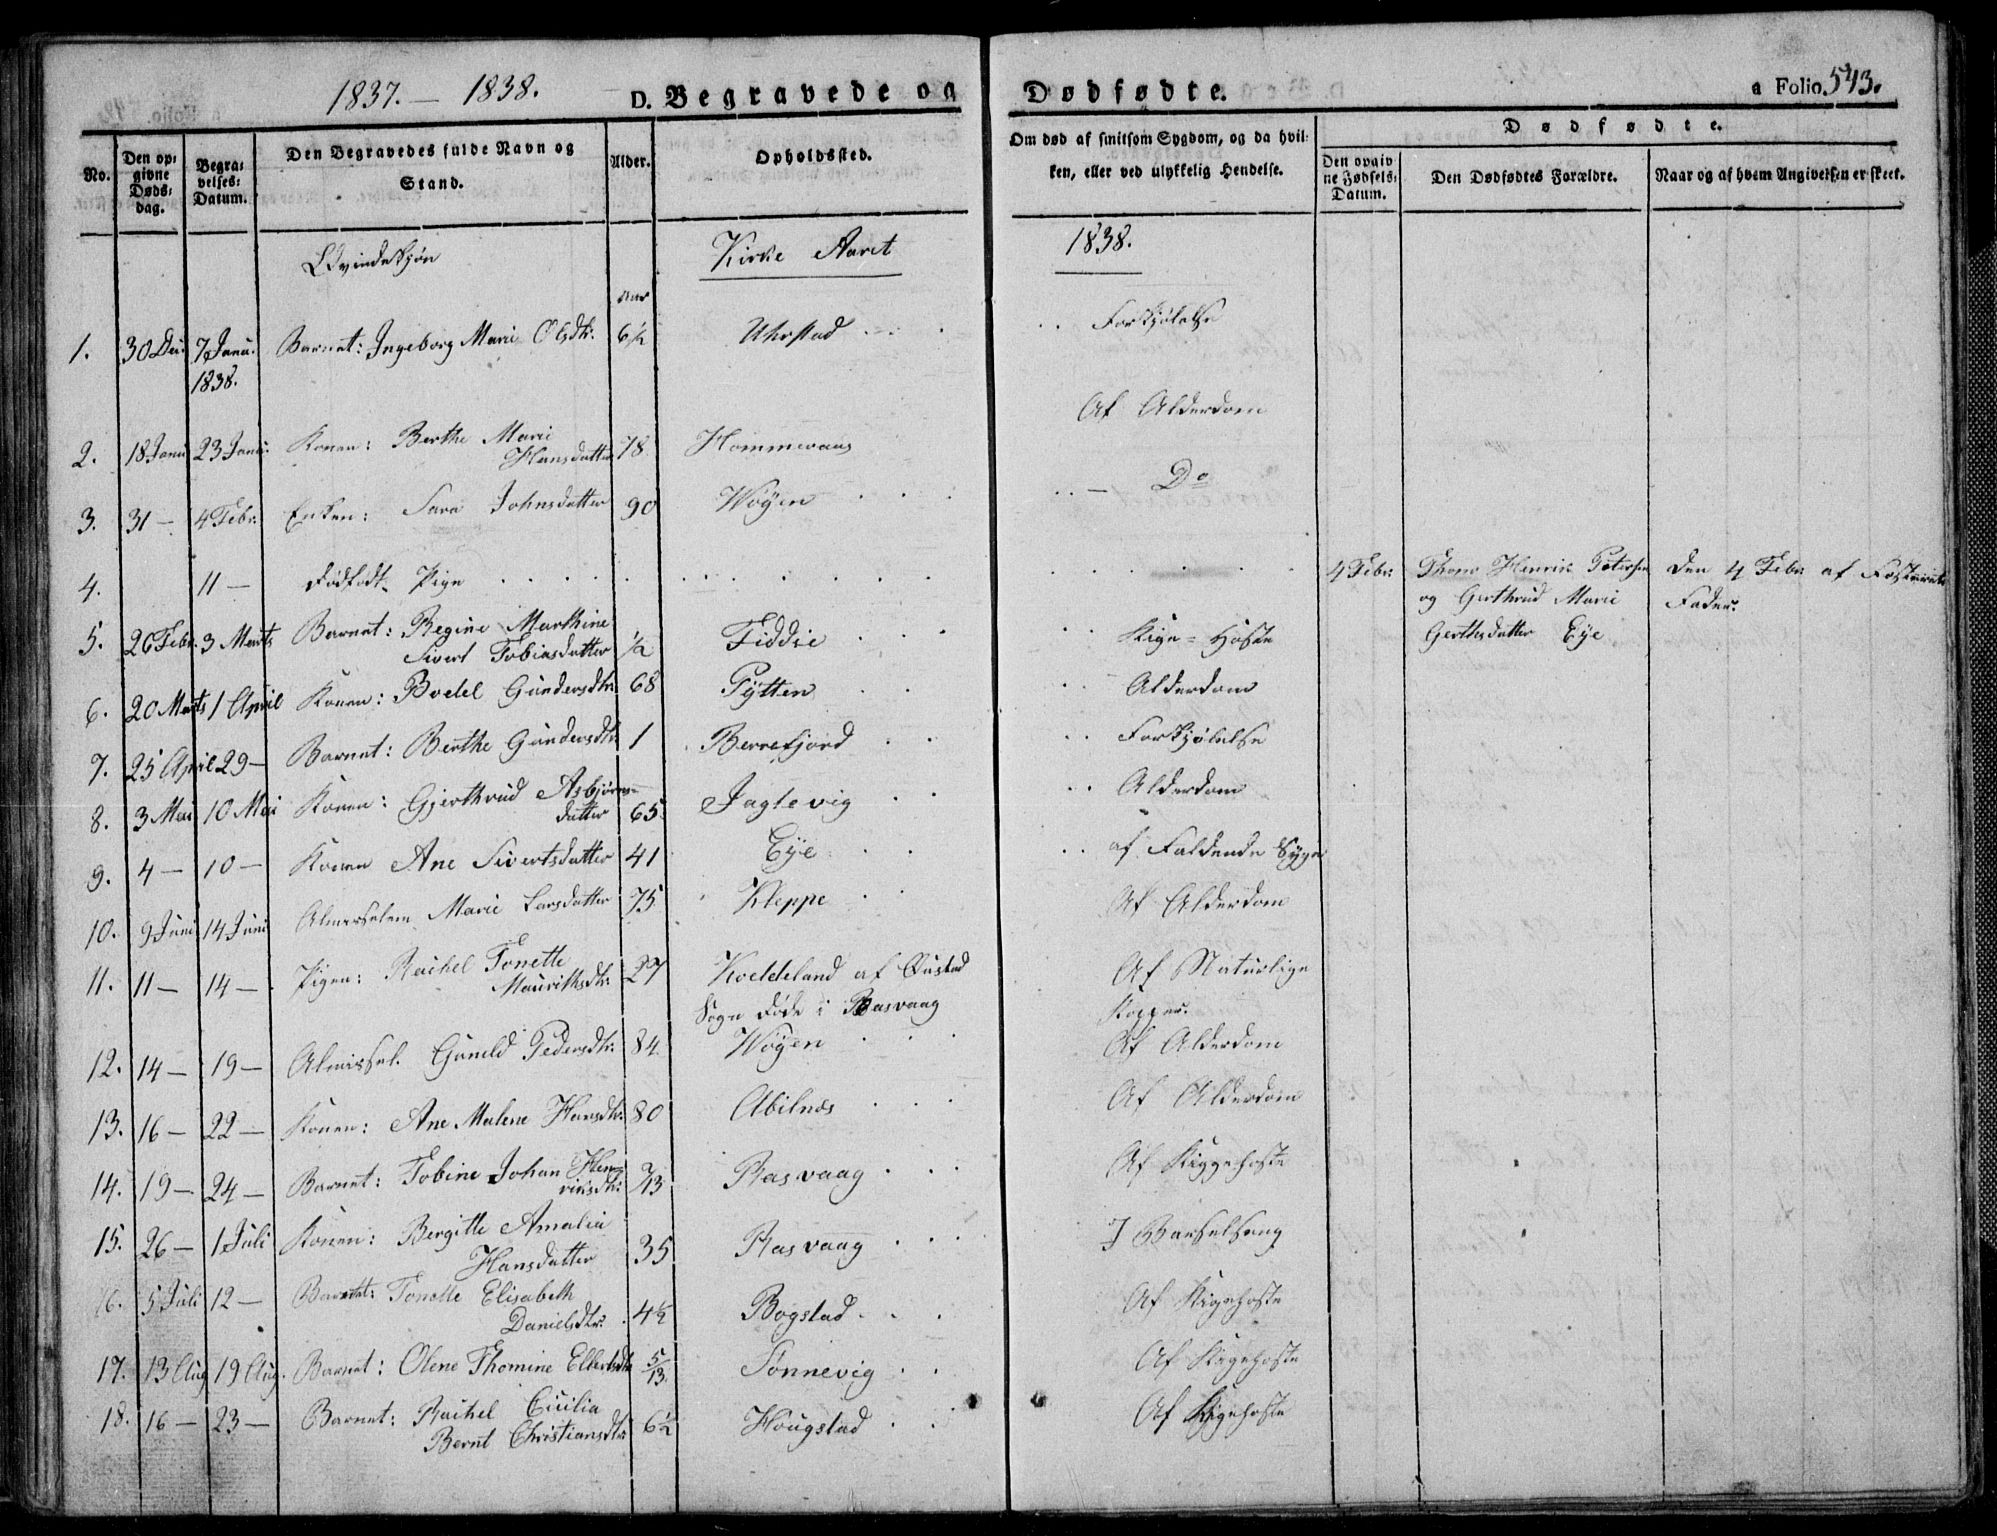 1837. – 1838. D. Begravede og Dødfødte. a Folio. 543.
No. Den op: givne Døds: dag. Begra: velses: Datum. Den Begravedes fulde Navn og Stand. Alder. Opholdssted. Om død af smitsom Sygdom, og da hvil: ken, eller ved ulykkelig Hendelse. Dødfødte.
Den opgiv ne Fødsels: Datum. Den Dødfødtes Forældre. Naar og af hvem Angivelsen er skeet.
Qvindekjøn Kirke Aaret 1838.
Aar
1. 30 Dec: 7 Janu: 1838. Barnet: Ingeborg Marie Olsdtr. 6½ Uhrstad . . . . Forkjølelse
2. 18 Janu 23 Janu: Konen: Berthe Marie Hansdatter 78 Hommevaag Af Alderdom
3. 31 – 4 Febr. Enken: Sara Johnsdatter 90 Wøyen . . . – Do
4. 11 – Dødfødt Pige . . . . 4 Febr. Thomo Henrik Petersen og Gerthrud Marie Gerthsdatter Eye Den 4 Febr. af Fader.
5. 26 Febr. 3 Marts Barnet: Regine Marthine Sivert Tobiasdatter ½ Fiddie . . . Kige=Hoste
6. 20 Marts 1 April Konen: Boelel Gundersdtr. 68 Pytten . . Alderdom
7. 25 April 29 – Barnet: Berthe Gundersdtr 1 Berrefjord . . Forkjølelse
8. 3 Mai 10 Mai Konen: Gjerthrud Asbjørns– datter 65 Jagtevig . . Alderdom
9. 4 – 10 – Konen Ane Sivertsdatter 41 Eye . . af Faldende Syge
10. 9 Juni 14 Juni Marie Larsdatter 75 Kleppe . Af Alderdom
11. 11 – 14 – Pigen: Rachel Tonette Maurithsdtr. 27 Koeldeland af Qvistad Sogn døde i Rasvaag Af Naturlige Kopper.
12. 14 – 19 – Almissel. Guneld Pedersdtr. 84 Wøyen . . . Af Alderdom
13. 16 – 22 – Konen: Ane Malene Hansdtr. 80 Abilnæs . . . Af Alderdom
14. 19 – 24 – Barnet: Tobine Johan Hen= riksdtr: 2/13 Rasvaag . . . Af Kiggehoste
15. 26 – 1 Juli Konen: Bergitte Amalia Hansdatter 35 Rasvaag . . . I Barselseng
16. 5 Juli 12 – Barnet: Tonette Elisabeth Danielsdtr. 4½ Bogstad . . . Af Kigehoste
17. 13 Aug 19 Aug. Barnet: Olene Thomine Ellertsdtr 5/13 Sønnevig . . Af Kigehoste
18. 16 – 23 – Barnet: Rachel Cicilia Bernt Christiansdtr 6½ Hougstad . . Af Kigehoste